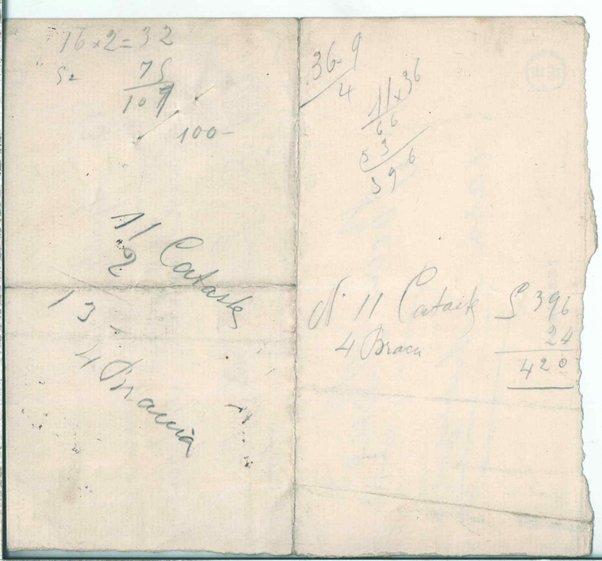 16 x 2 = 32
75
107
100-
11 Cataste
2
13
4 Bracia
36-9
4
11 x 36
66
33
396
N. 11 Cataste £ 396
4 Bracia 24
420